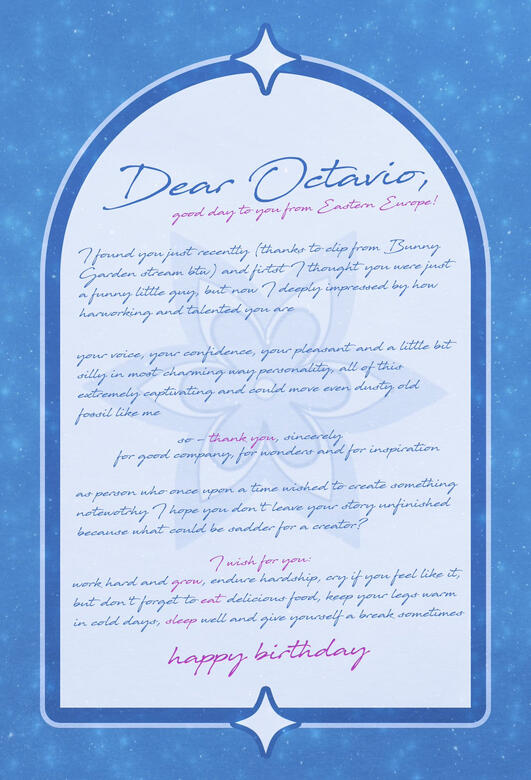 Dear Octavio,
good day to you from Eastern Europe!
I found you just recently (thanks to clip from Bunny
Garden stream btw) and firtst I thought you were just
a funny little guy, but now I deeply impressed by how
harworking and talented you are
your voice, your confidence, your pleasant and a little bit
silly in most charming way personality, all of this
extremely captivating and could move even dusty old
fossil like me
so - thank you, sincerely
for good company, for wonders and for inspiration
as person who once upon a time wished to create something
noteworthy I hope you don't leave your story unfinished
because what could be sadder for a creator?
I wish for you:
work hard and grow, endure hardship, cry if you feel like it,
but don't forget to eat delicious food, keep your legs warm
in cold days, sleep well and give yourself a break sometimes
happy birthday